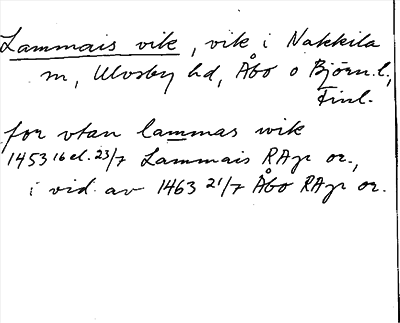 Lammais vik, vik i Nakkila
m, Ulvsby hd, Åbo o Björn.l.,
Finl.
for vtan lammas wik
1453 16 el. 23/7 Lammais RApr or.,
i vid. av 1463 21/7 Åbo RApr or.